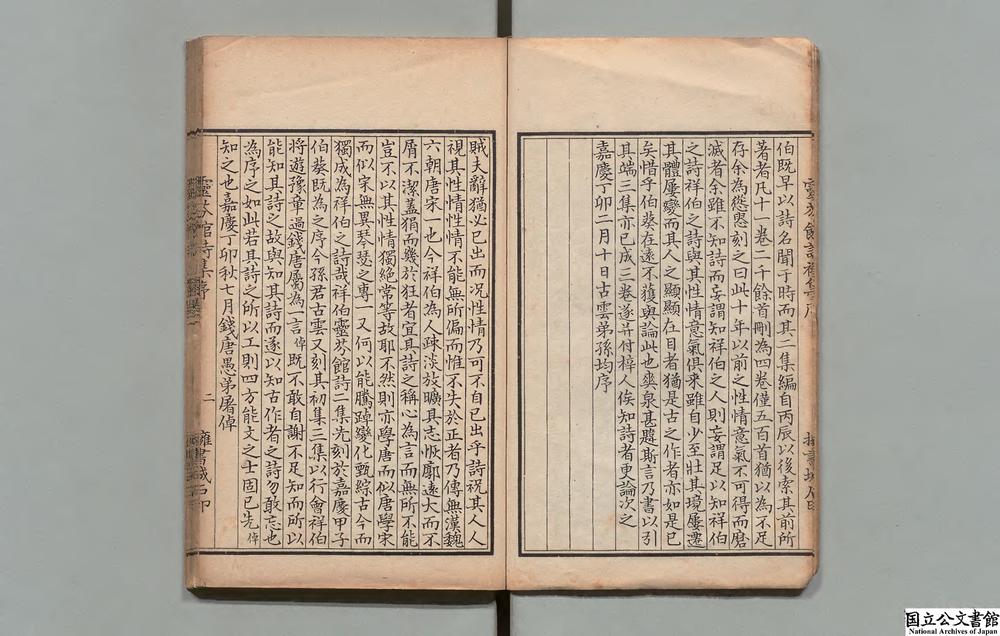 伯既早以詩名聞于時而其二集編自丙辰以後索其前所
著者凡十一卷二千餘首刪為四卷僅五百首猶以為不足
存余為慫恿刻之曰此十年以前之性情意氣不可得而磨
滅者余雖不知詩而妄謂知祥伯之人則妄謂足以知祥伯
之詩祥伯之詩與其性情意氣俱來雖自少至壯其境屢遷
其體屢變而其人之顯顯在目者猶是古之作者亦如是已
矣惜乎伯葵在遠不獲與論此也爽泉甚韙斯言乃書以引
其端三集亦已成三卷遂并付梓人俟知詩者更論次之
嘉慶丁卯二月十日古雲弟孫均序
賊夫辭猶必已出而况性情乃可不自已出乎詩祝其人人
視其性情性情不能無所偏而惟不失於正者乃傳無漢魏
六朝唐宋一也今祥伯為人疎淡放曠具志恢廓遠大而不
屑不潔蓋狷而幾於狂者宜其詩之稱心為言而無所不能
豈不以其性情獨絶常等故耶不然則亦學唐而似唐學宋
而似宋無異琴瑟之專一又何以能騰踔變化甄綜古今而
獨成為祥伯之詩哉祥伯靈芬館詩二集先刻於嘉慶甲子
伯葵既為之序今孫君古雲又刻其初集三集以行會祥伯
將遊豫章過錢唐屬為一言倬既不敢自謝不足知而所以
能知其詩之故與知其詩而遂以知古作者之詩勿敢忘也
為序之如此若其詩之所以工則四方能文之士固已先倬
知之也嘉慶丁卯秋七月錢唐愚弟屠倬
靈芬館詩集序
二
國立公文書館
National Archives of Japan